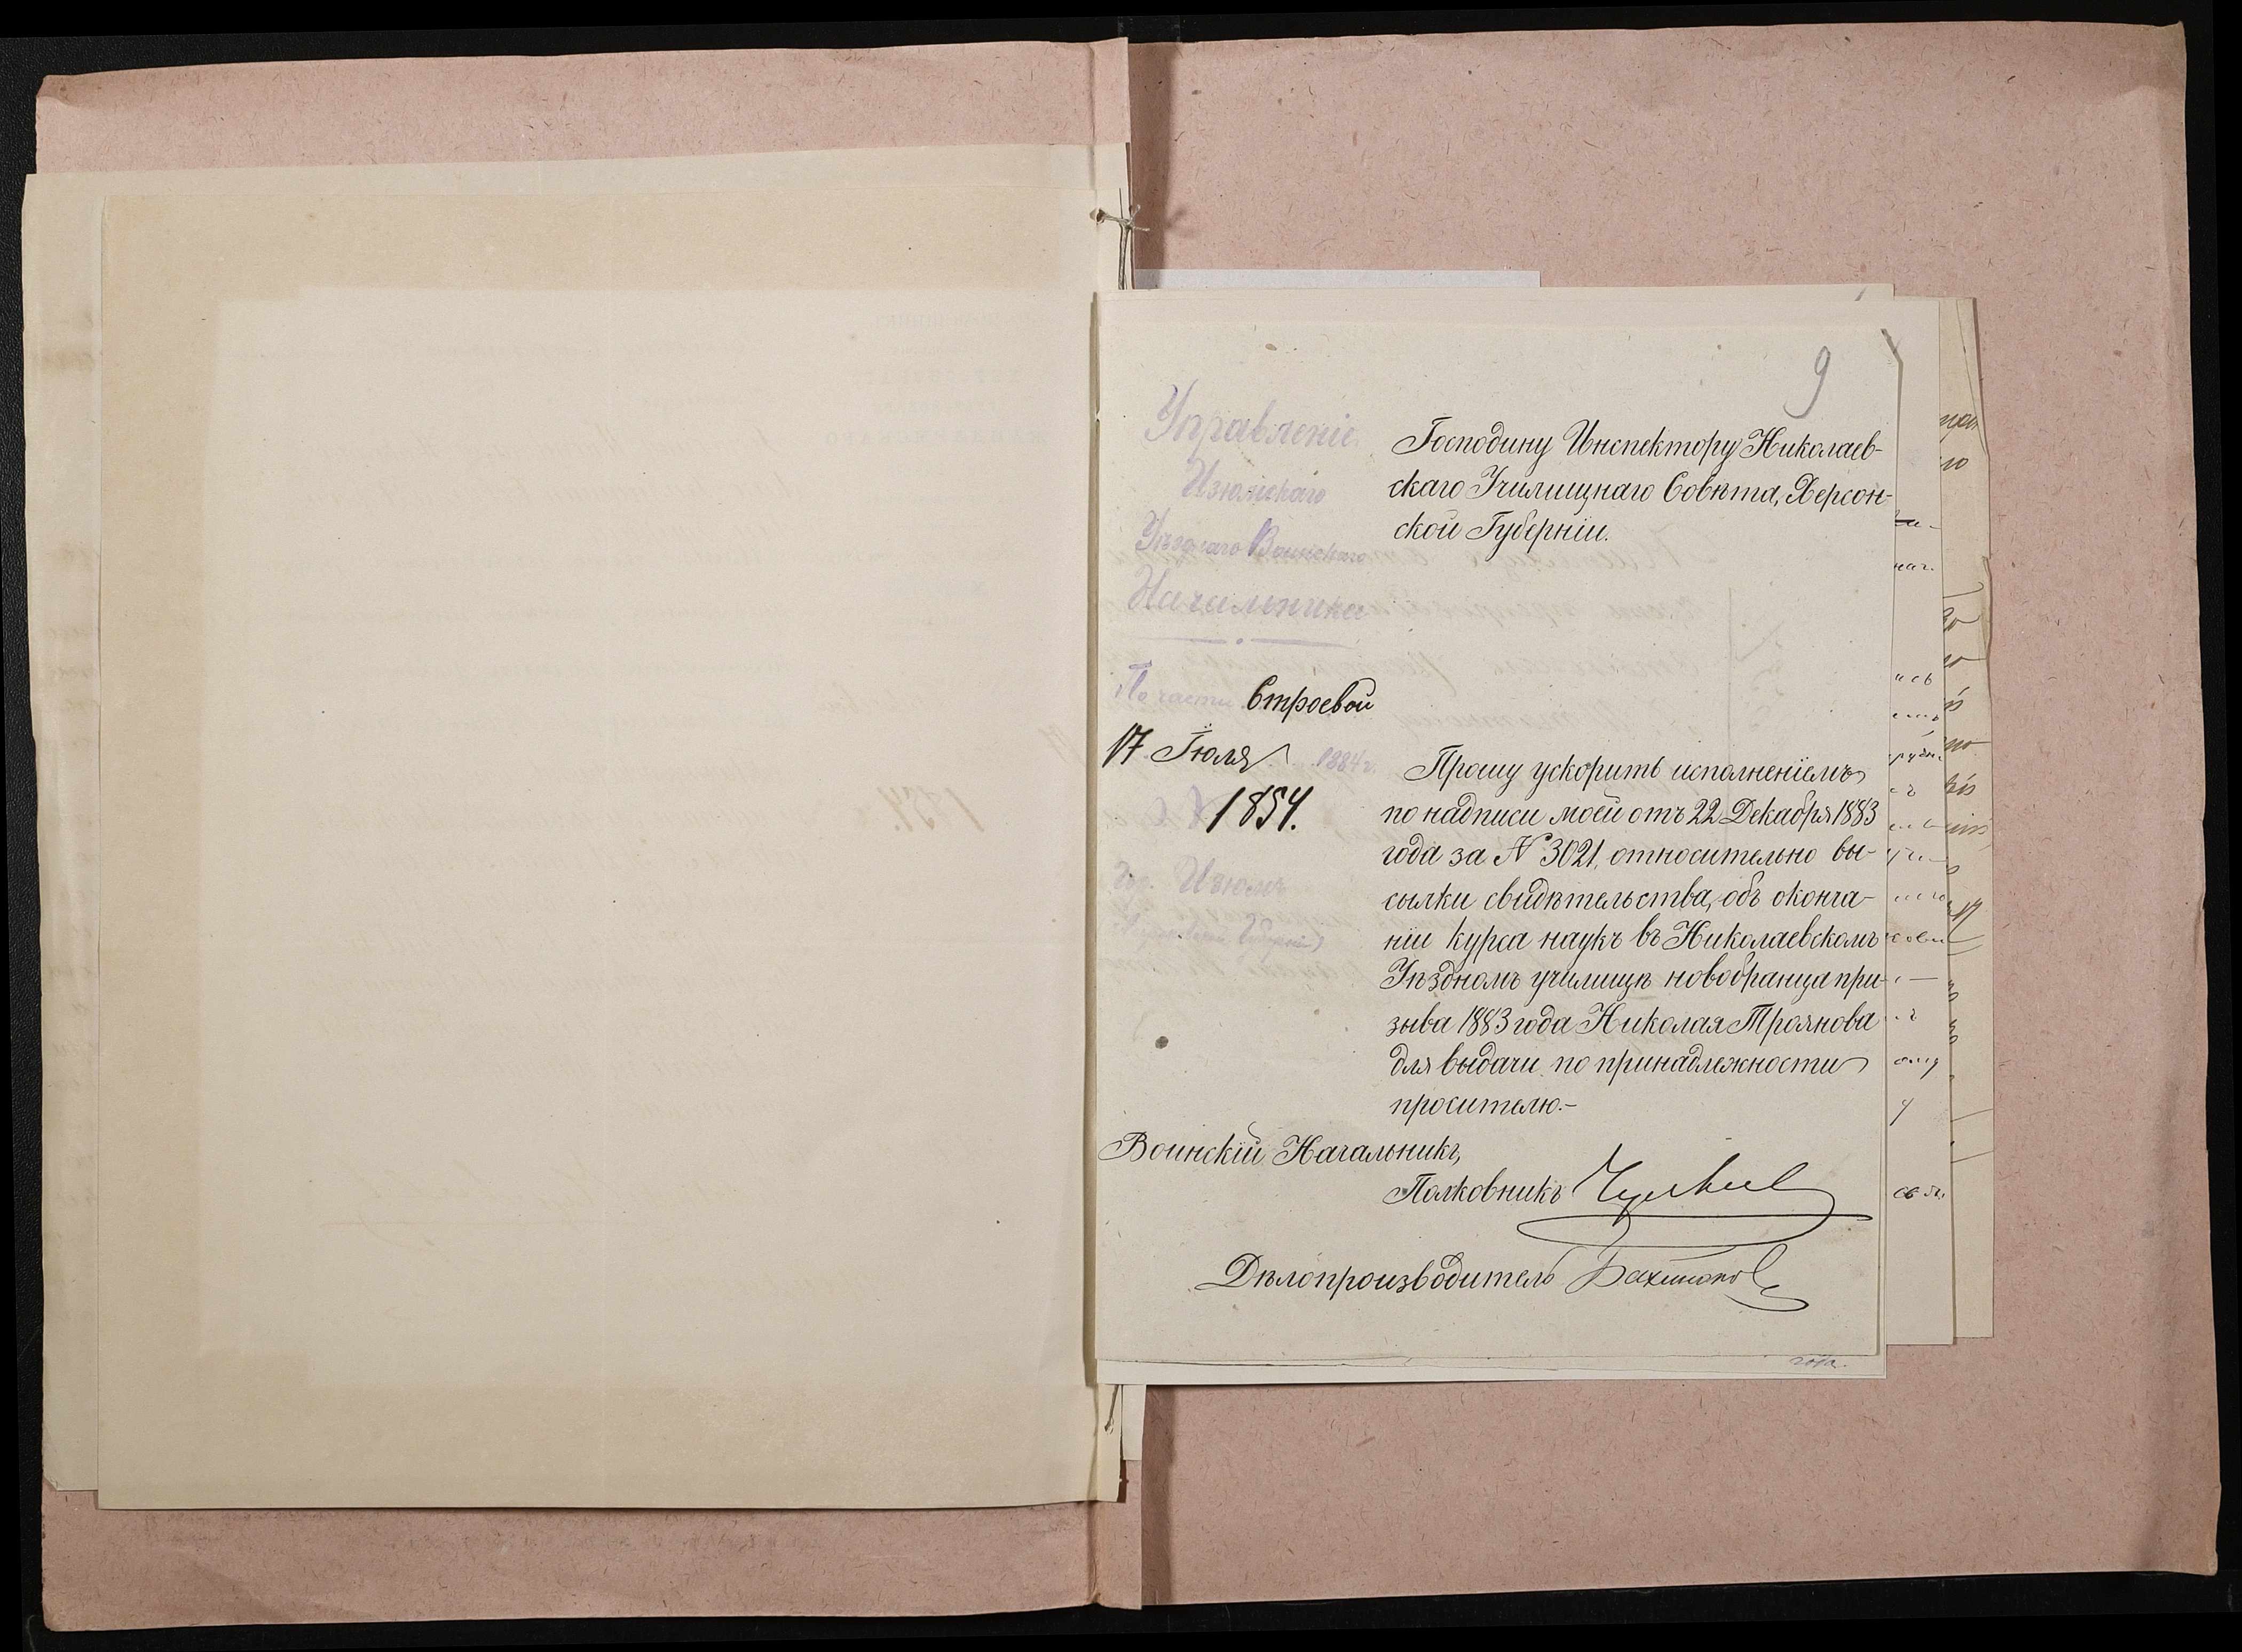 9
Управленіе
Изюмскаго
Уѣзднаго Воинскаго
Начальника
По части Строевой
17 Іюля 1884 г.
№ 1854.
Гор. Изюмъ
Губерніи)
Господину Инспектору Николаев-
скаго Училищнаго Совѣта, Херсон-
ской Губерніи.
Прошу ускорить исполненіемъ
по надписи моей отъ 22 Декабря 1883
года за № 3021, относительно вы-
сылки свидѣтельства, объ оконча-
ніи курса наукъ въ Николаевскомъ
Уѣздномъ училищѣ новобранца при-
зыва 1883 года Николая Троянова
для выдачи по принадлежности
просителю.-
Воинскій Начальникъ,
Полковникъ
Дѣлопроизводитель
года.